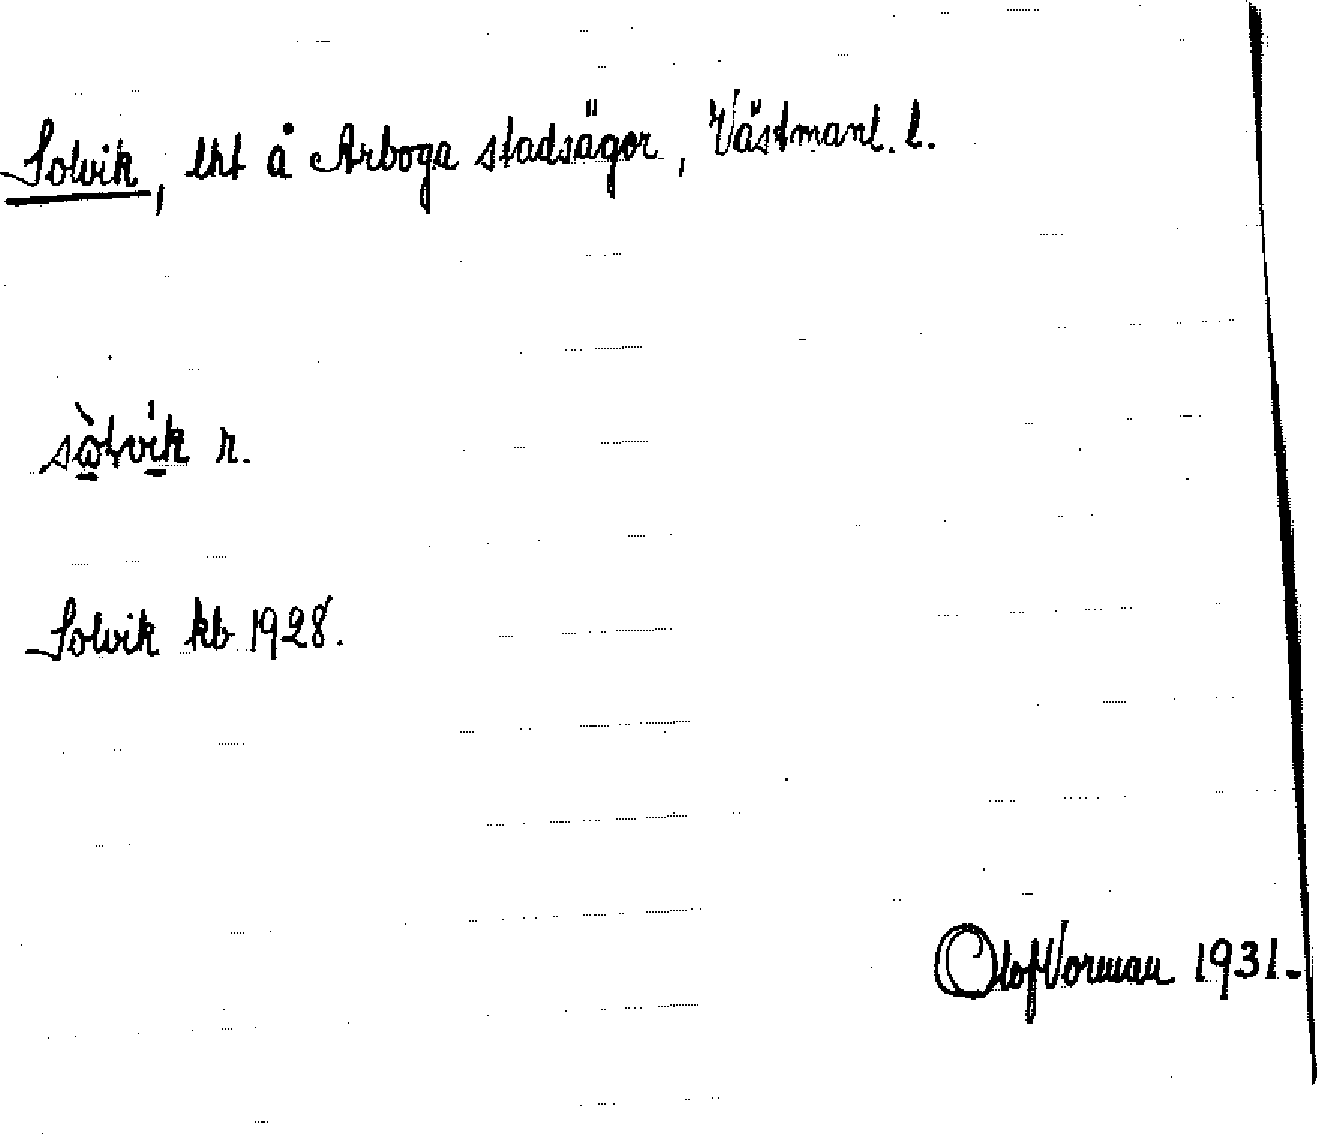 Solvik, lht å Arboga stadsägor, Västmanl. l.
sòlvik r.
Solvik kb 1928.
Olof Vorman 1931.